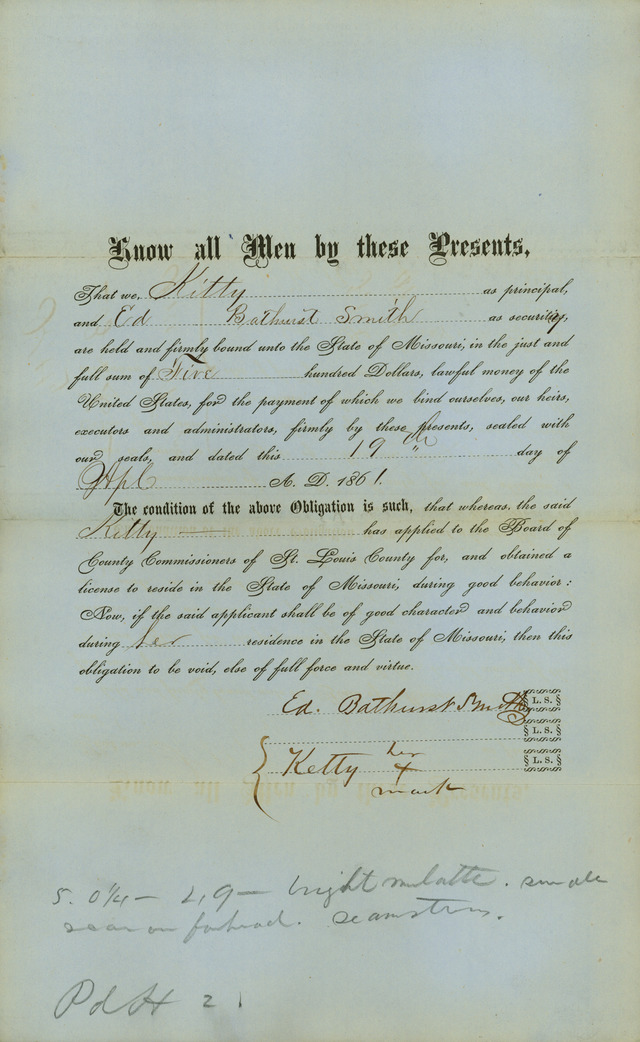 Know all Men by these Presents,
That we, Kitty as principal,
and Ed Bathurst Smith as security,
are held and firmly bound unto the State of Missouri, in the just and
full sum of Five hundred Dollars, lawful money of the
United States, for the payment of which we bind ourselves, our heirs,
executors and administrators, firmly by these presents, sealed with
our seals, and dated this 19th day of
Apl A. D. 1861.
The condition of the above Obligation is such, that whereas, the said
Kitty has applied to the Board of
County Commissioners of St. Louis County for, and obtained a
license to reside in the State of Missouri, during good behavior:
Now, if the said applicant shall be of good character and behavior
during her residence in the State of Missouri, then this
obligation to be void, else of full force and virtue.
Ed. Bathurst Smith L. S.
L. S.
her
Ketty + L. S.
mark
5. 0¼ — 29 — bright mulatto. small
scar on forhead. seamstress.
Pd H 21